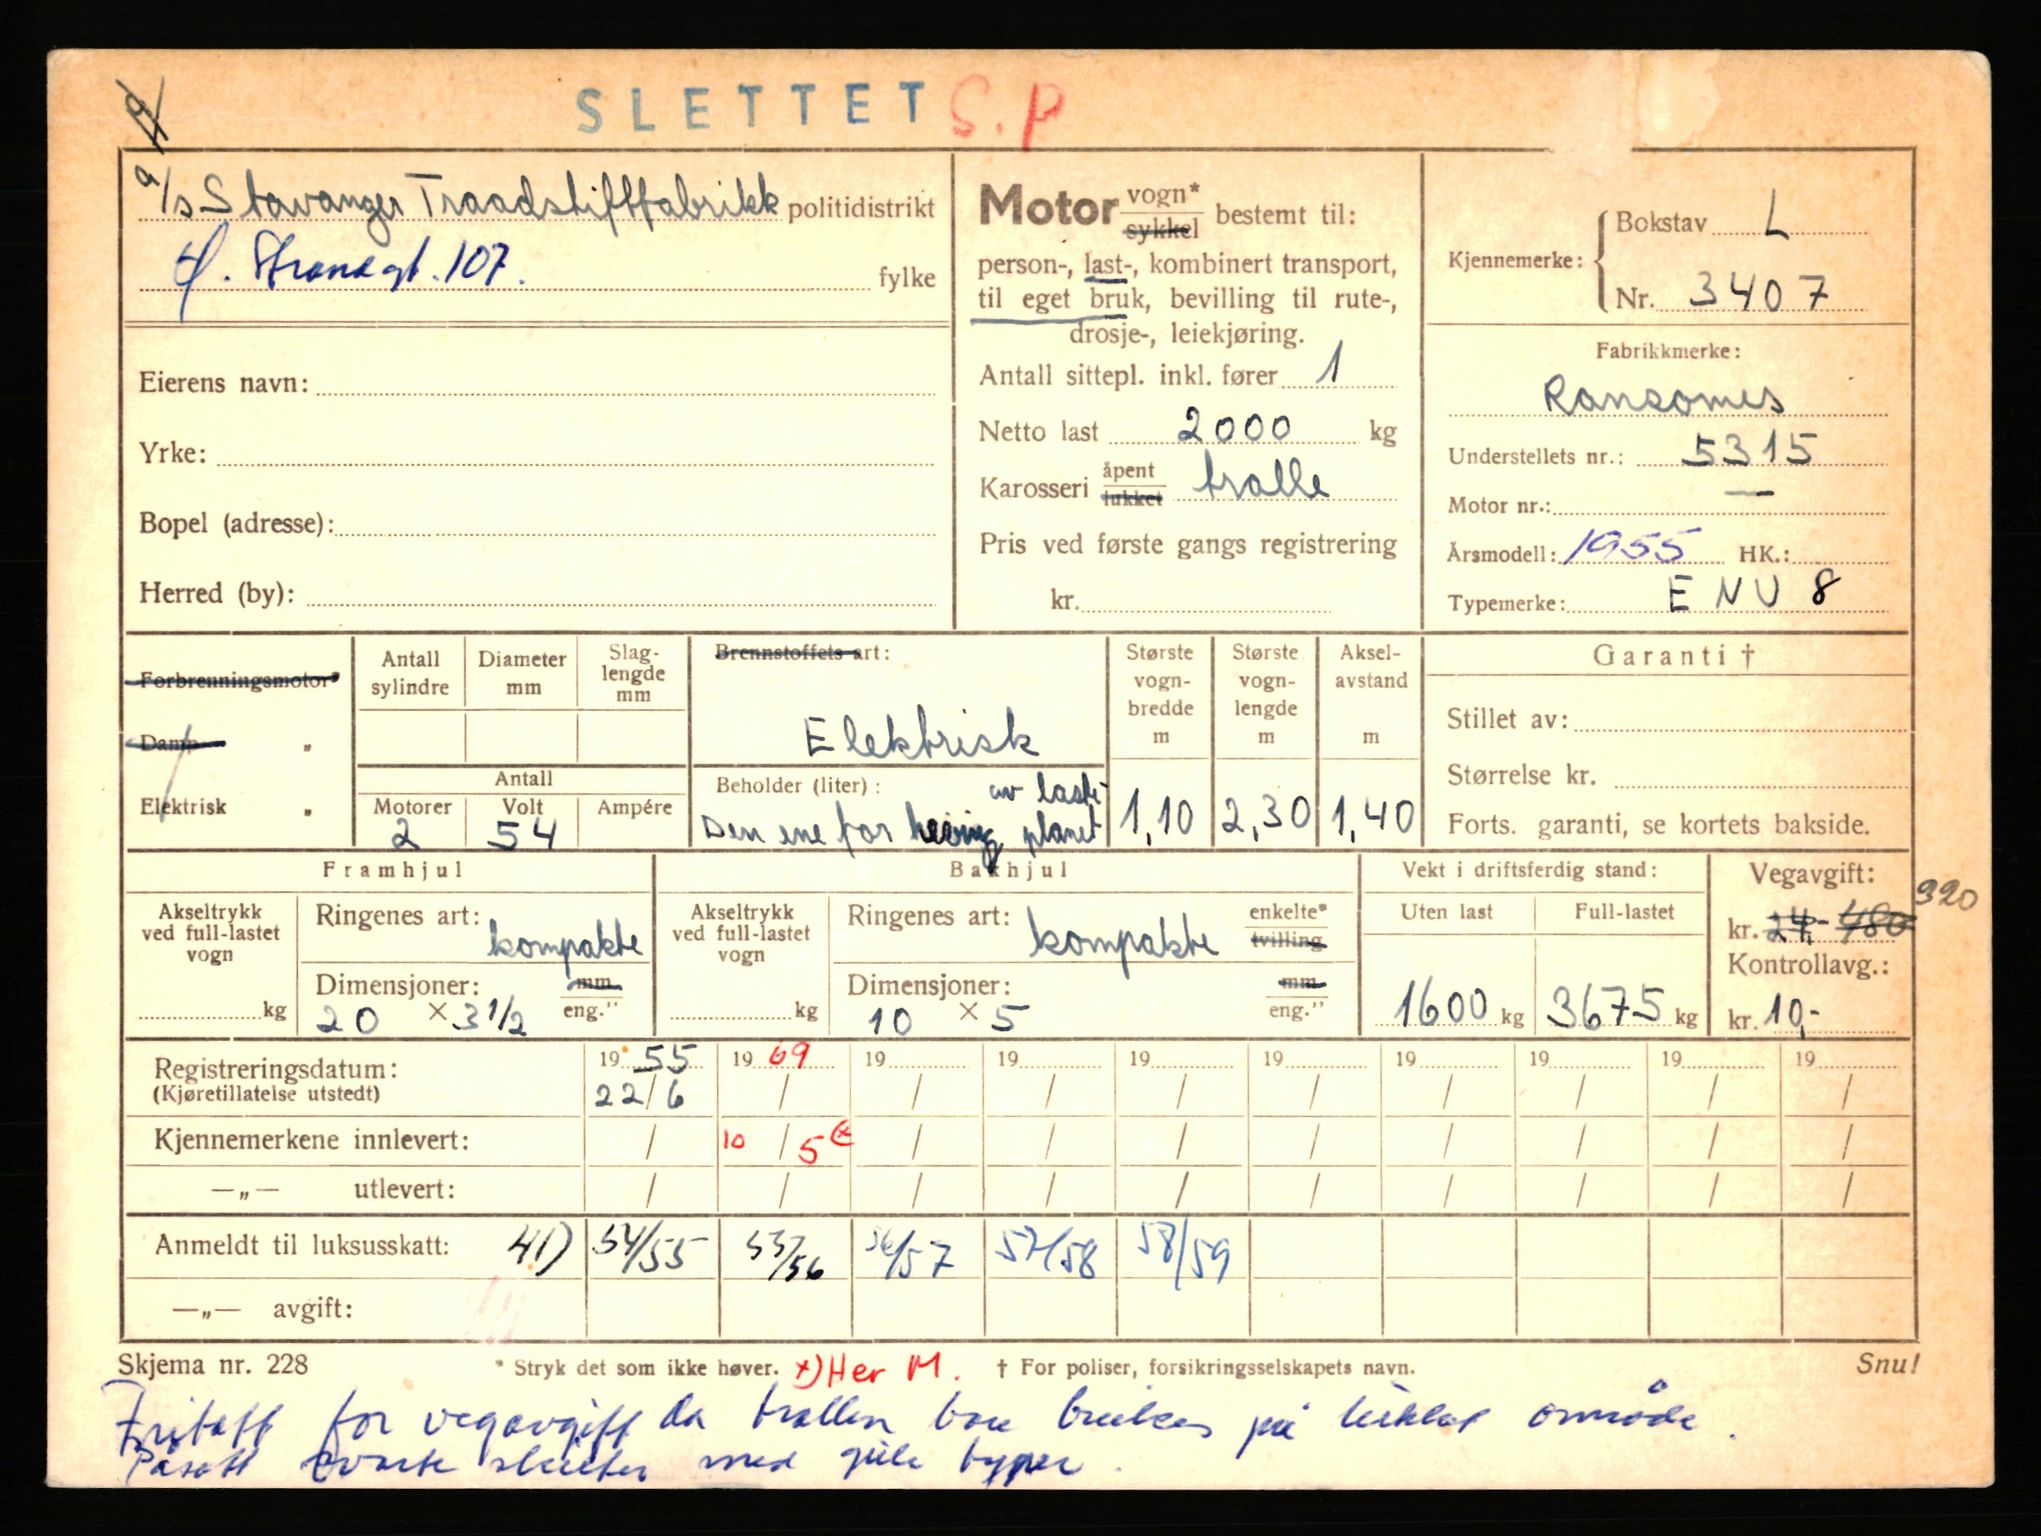 SLETTET S.P
a/s Stavanger Traadstiftfabrikk politidistrikt
Ø. Strandgt. 107. fylke
Eierens navn:
Yrke:
Bopel (adresse):
Herred (by):
Motor vogn* sykkel bestemt til:
person-, last-, kombinert transport,
til eget bruk, bevilling til rute-,
drosje-, leiekjøring.
Antall sittepl. inkl. fører 1
Netto last 2000 kg
Karosseri åpent lukket tralle
Pris ved første gangs registrering
kr.
Kjennemerke: Bokstav L
Nr. 3407
Fabrikkmerke:
Ransomes
Understellets nr.: 5315
Motor nr.: —
Årsmodell: 1955 HK.:
Typemerke: ENU 8
Forbrenningsmotor*
Damp "
Elektrisk "
Antall sylindre
Diameter mm
Slag-lengde mm
Antall
Motorer Volt Ampére
2 54
Brennstoffets art:
Elektrisk
Beholder (liter): av laste-
Den ene for heving planet
Største vogn-bredde m
1,10
Største vogn-lengde m
2,30
Aksel-avstand m
1,40
Garanti †
Stillet av:
Størrelse kr.
Forts. garanti, se kortets bakside.
Framhjul
Akseltrykk ved full-lastet vogn
kg
Ringenes art: kompakte
Dimensjoner: mm
20 × 3 1/2 eng."
Bakhjul
Akseltrykk ved full-lastet vogn
kg
Ringenes art: kompakte enkelte* tvilling
Dimensjoner: mm
10 × 5 eng."
Vekt i driftsferdig stand:
Uten last Full-lastet
1600 kg 3675 kg
Vegavgift: 320
kr. 24,- 480
Kontrollavg.:
kr. 10,-
Registreringsdatum: 19 55 19 69 19 19 19 19 19 19 19 19
(Kjøretillatelse utstedt) 22/6 / / / / / / / / /
Kjennemerkene innlevert: / 10/5 x / / / / / / / /
—„— utlevert: / / / / / / / / / /
Anmeldt til luksusskatt: 41) 54/55 55/56 56/57 57/58 58/59
—„— avgift:
Skjema nr. 228 * Stryk det som ikke høver. x) Her M. † For poliser, forsikringsselskapets navn. Snu!
Fritatt for vegavgift da trallen bare brukes på lukket område.
Påsatt svarte skilter med gule typer.